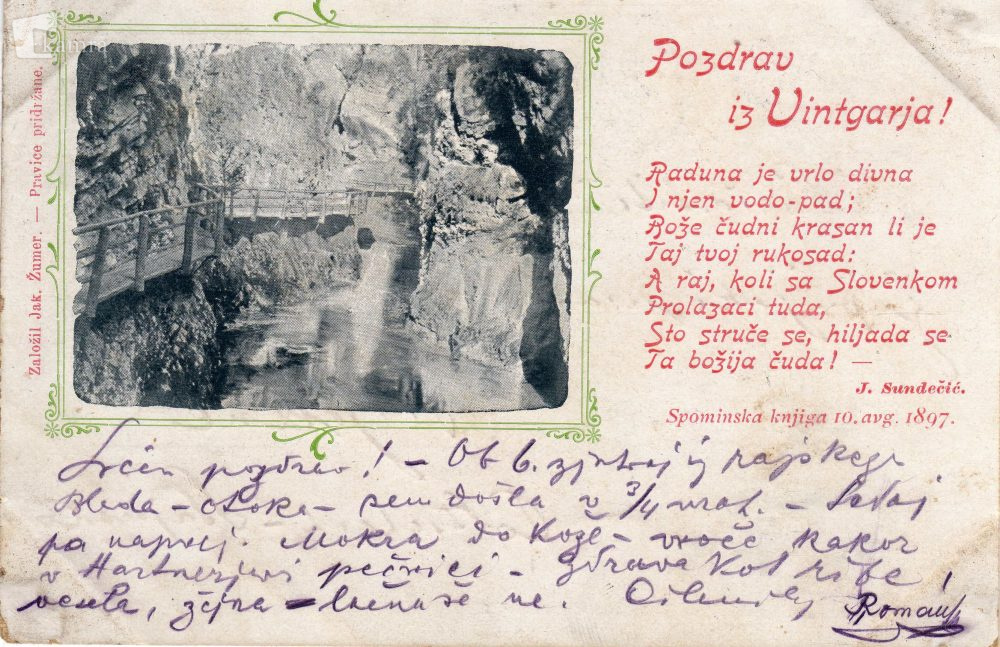 Založil Jak. Žumer. — Pravice pridržane.
Pozdrav
iz Vintgarja!
Raduna je vrlo divna
I njen vodo-pad;
Bože čudni krasan li je
Taj tvoj rukosad:
A raj, koli sa Slovenkom
Prolazaci tuda,
Sto struče se, hiljada se
Ta božija čuda! —
J. Sundečić.
Spominska knjiga 10. avg. 1897.
pozdrav! – Ob 6. zjutraj iz rajskega
Bleda – otoka – sem došla v 3/4 –
pa naprej. Mokra do kože – vroče kakor
v Hartnerjevi pečnici – zdrava kot ribe,
vesela, žejna – lačna še ne.